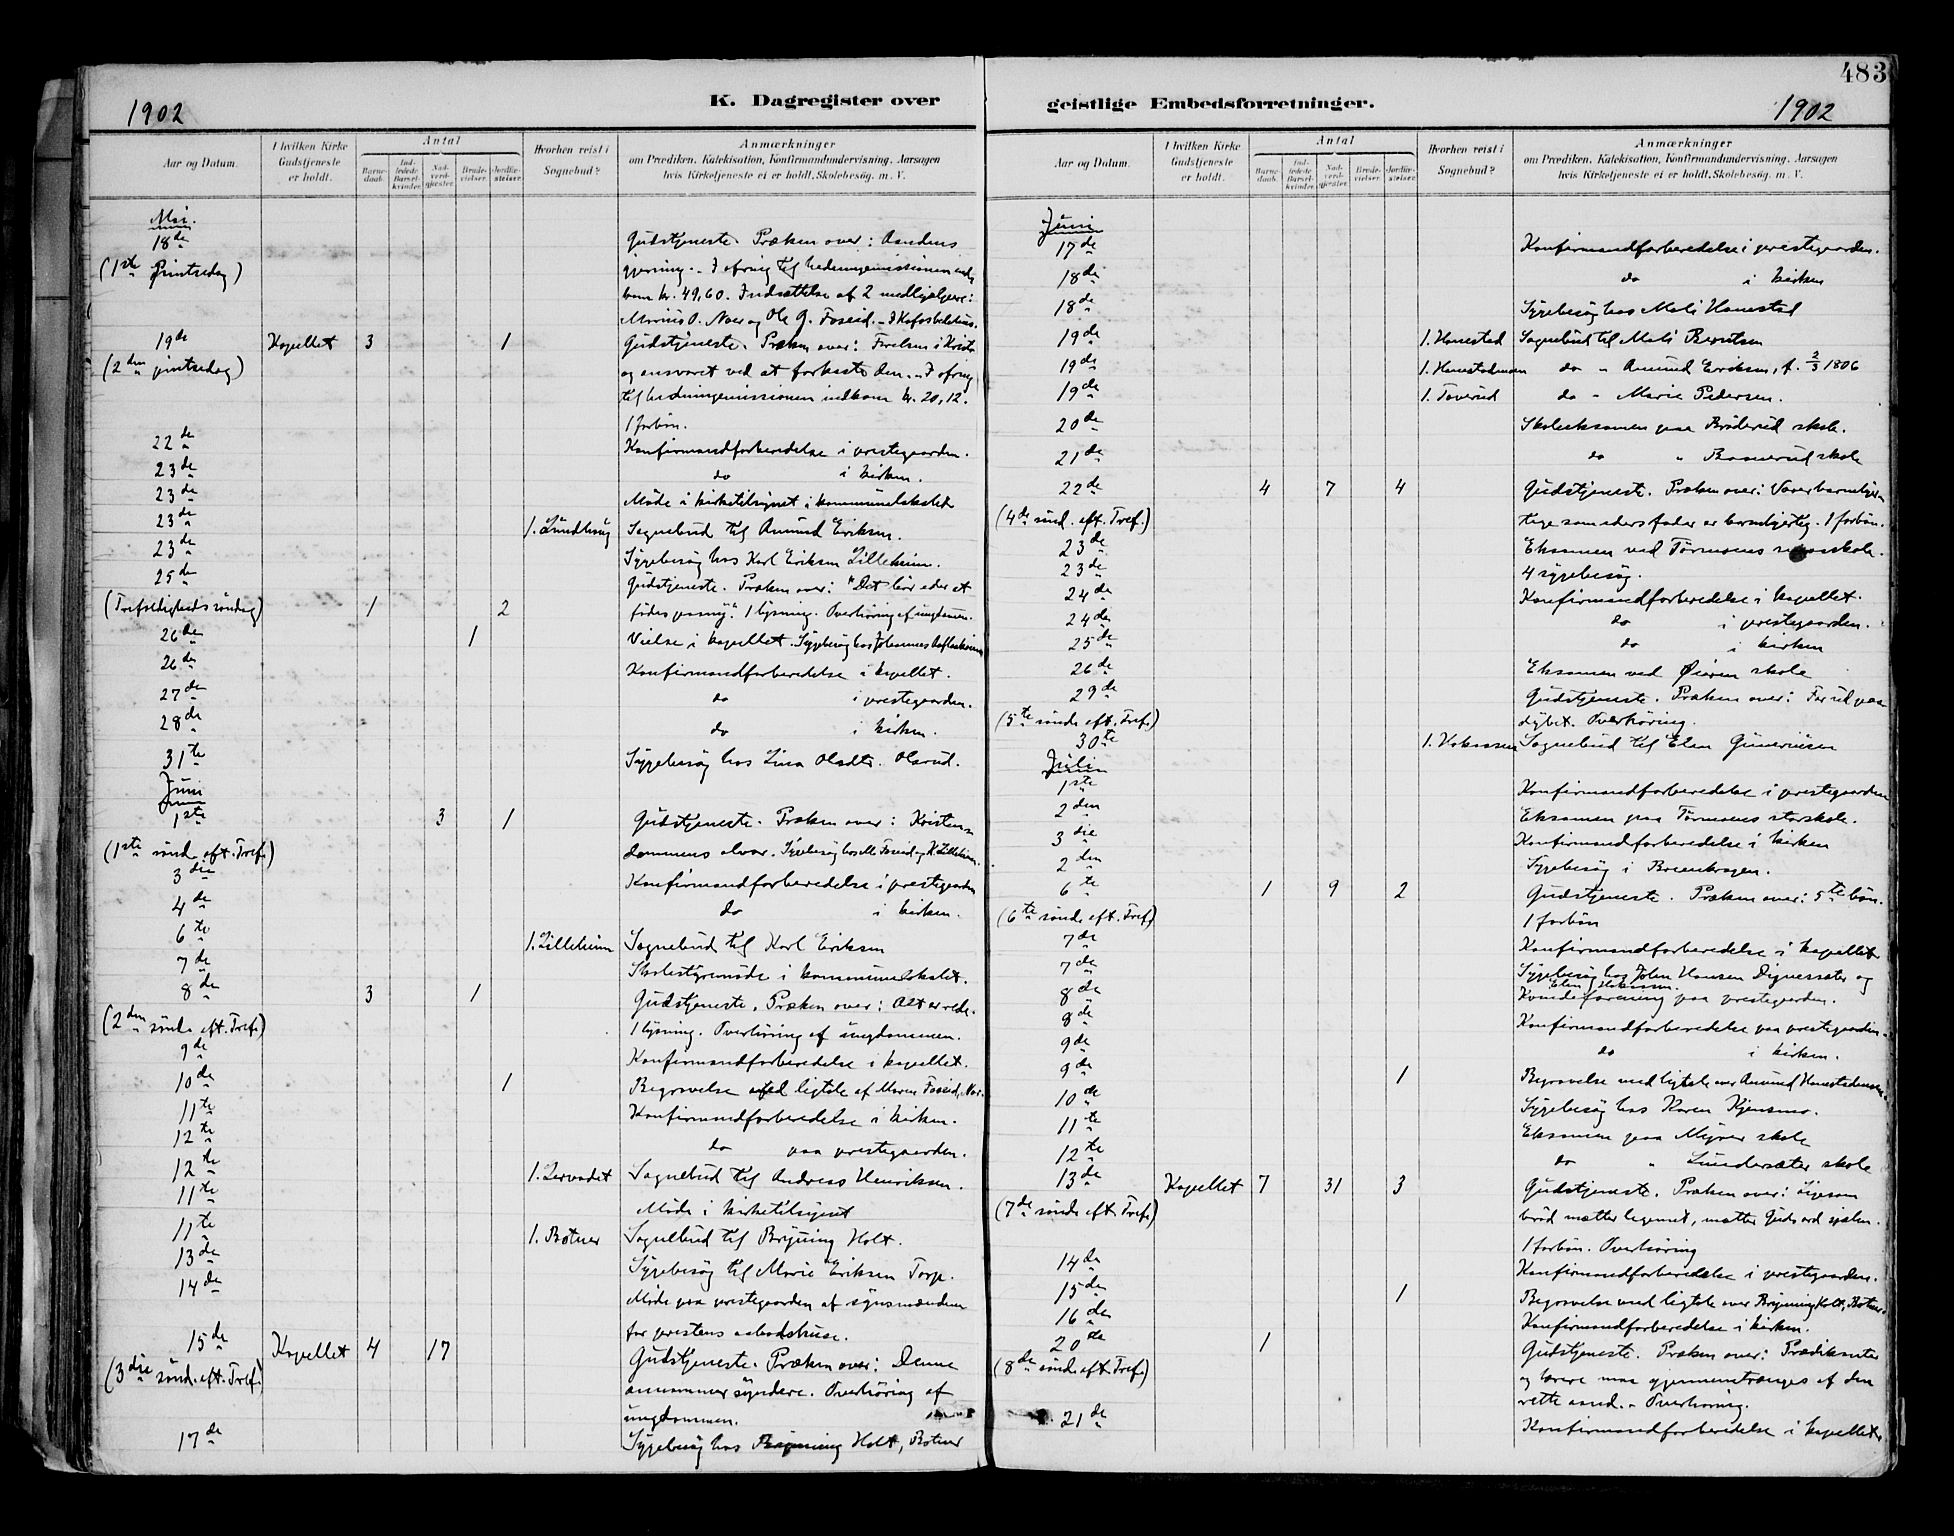 483
1902
K. Dagregister over
geistlige Embedsforretninger.
1902
Aar og Datum.
I hvilken Kirke Gudstjeneste er holdt.
Antal
Barne-daab.
Ind-ledede Barsel-kvinder.
Nad-verd-gjæster.
Brude-vielser.
Jordfæ-stelser.
Hvorhen reist i Sognebud?
Anmærkninger
om Prædiken, Katekisation, Konfirmandundervisning, Aarsagen
hvis Kirketjeneste ei er holdt, Skolebesøg, m. V.
Mai.
18de Gudstjeneste. Præken over: Aandens
(1ste Pintsedag) gjerning. - I ofring til hedningemissionen ind-
kom kr. 49,60. Indsættelse af 2 medhjælpere:
Marius O. Noer og Ole G. Foseid. -
19de Kapellet 3 1 Gudstjeneste. Præken over: Frelsen i Kristo
(2den pintsedag) og ansvaret ved at forkaste den. - I ofring
til hedningemissionen indkom kr. 20,12.
1 forbøn.
22de Konfirmandforberedelse i prestegaarden.
23de do i kirken.
23de Møde i kirketilsynet i kommunelokalet
23de 1. Lundhaug Sognebud til Amund Eriksen.
23de Sygebesøg hos Karl Eriksen Lilleheim.
25de Gudstjeneste. Præken over: "Det bør eder at
(Trefoldigheds søndag) 1 2 fødes paany". 1 lysning. Overhøring af ungdommen.
26de 1 Vielse i kapellet. Sygebesøg hos Johannes
26de Konfirmandforberedelse i kapellet.
27de do i prestegaarden.
28de do i kirken.
31te Sygebesøg hos Lina Olsdtr. Olsrud.
Juni
1ste 3 1 Gudstjeneste. Præken over: Kristen-
(1ste sønd. eft. Tref.) dommens alvor. Sygebesøg hos M. Foseid og K. Lilleheim.
3die Konfirmandforberedelse i prestegaarden
4de do i kirken.
6te 1. Lilleheim Sognebud til Karl Eriksen
7de Skolestyremøde i kommunelokalet.
8de 3 1 Gudstjeneste. Præken over: Alt er rede.
(2den sønd. eft. Tref.) 1 lysning. Overhøring af ungdommen.
9de Konfirmandforberedelse i kapellet.
10de 1 Begravelse med ligtale af Maren Foseid, Noer.
11te Konfirmandforberedelse i kirken.
12te do paa prestegaarden.
12te 1. Sognebud til Andreas Henriksen.
11te Møde i kirketilsynet
11te 1. Botner Sognebud til Bryning Holt.
13de Sygebesøg til Marie Eriksen Torp.
14de Møde paa prestegaarden af synsmændene
for prestens
15de Kapellet 4 17 Gudstjeneste. Præken over: Denne
(3die sønd. eft. Tref.) annammer syndere. Overhøring af
ungdommen.
17de Sygebesøg hos Bryning Holt, Botner
Aar og Datum.
I hvilken Kirke Gudstjeneste er holdt.
Antal
Barne-daab.
Ind-ledede Barsel-kvinder.
Nad-verd-gjæster.
Brude-vielser.
Jordfæ-stelser.
Hvorhen reist i Sognebud?
Anmærkninger
om Prædiken, Katekisation, Konfirmandundervisning, Aarsagen
hvis Kirketjeneste ei er holdt, Skolebesøg, m. V.
Juni
17de Konfirmandforberedelse i prestegaarden.
18de do i kirken
18de Sygebesøg hos Mali Hanestad
19de 1. Hanestad Sognebud til Mali Berntsen
19de 1. Hanestadmoen do " Amund Eriksen, f. 2/3 1806
19de 1. Toverud do " Marie Pedersen.
20de Skoleeksamen paa Bråderud skole.
21de do " Basmerud skole
22de 4 7 4 Gudstjeneste. Præken over: Vær barmhjer-
(4de sønd. eft. Tref.) tige som eders fader er barmhjertig. 1 forbøn.
23de Eksamen ved Tørmoens
23de 4 sygebesøg.
24de Konfirmandforberedelse i kapellet.
24de do i prestegaarden.
25de do i kirken
26de Eksamen ved Øieren skole
29de Gudstjeneste. Præken over: Far ud paa
(5te sønd. eft. Tref.) dybet. Overhøring.
30te Sognebud til Elen Gunerius
Juli
1ste Konfirmandforberedelse i prestegaarden
2den Eksamen paa Tørmoens storskole.
3die Konfirmandforberedelse i kirken
2den Sygebesøg i
6te 1 9 2 Gudstjeneste. Præken over: 5te bøn.
(6te sønd. eft. Tref.) 1 forbøn
7de Konfirmandforberedelse i kapellet
7de Sygebesøg hos Johan Hansen Digeresæter og
8de paa prestegaarden.
8de Konfirmandforberedelse paa prestegaarden.
9de do i kirken.
9de 1 Begravelse med ligtale over Amund Hanestadmoen.
10de Sygebesøg hos Karen Kjensmo.
11te Eksamen paa Myrer skole
12te do " Lundersæter skole
13de Kapellet 7 31 3 Gudstjeneste. Præken over: Ligesom
(7de sønd. eft. Tref.) brød mætter legemet, mætter Guds ord sjælen.
1 forbøn. Overhøring
14de Konfirmandforberedelse i prestegaarden.
15de 1 Begravelse med ligtale over Bryning Holt, Botner.
16de Konfirmandforberedelse i kirken.
20de 1 Gudstjeneste. Præken over: Prædikanter
(8de sønd. eft. Tref.) og lærere maa gjennemtrænges af den
rette aand. - Overhøring.
21de Konfirmandforberedelse i kapellet